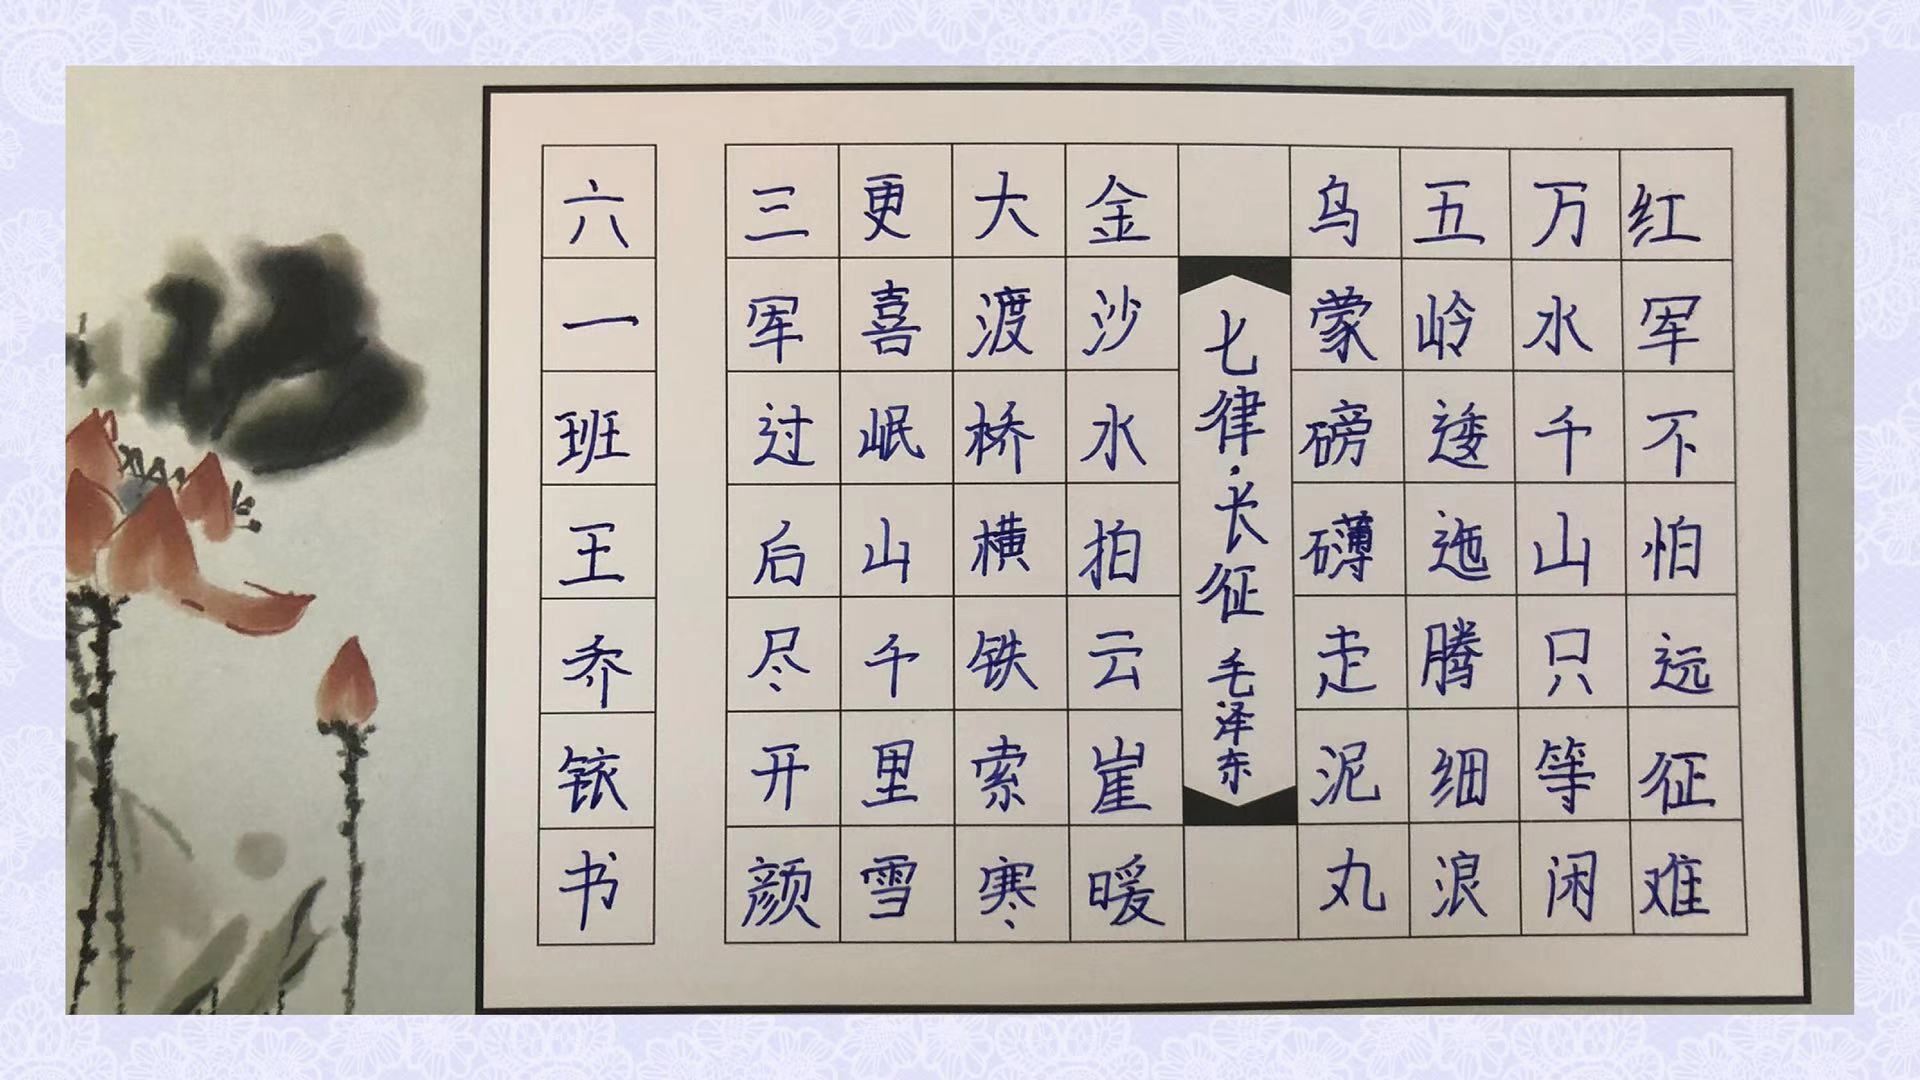 红军不怕远征难
万水千山只等闲
五岭逶迤腾细浪
乌蒙磅礴走泥丸
七律·长征 毛泽东
金沙水拍云崖暖
大渡桥横铁索寒
更喜岷山千里雪
三军过后尽开颜
六一班王乔铱书